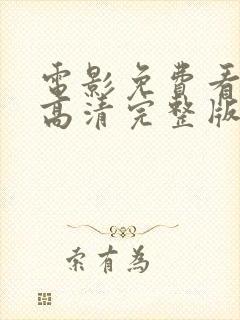 電影免費看
高清完整版
索有為